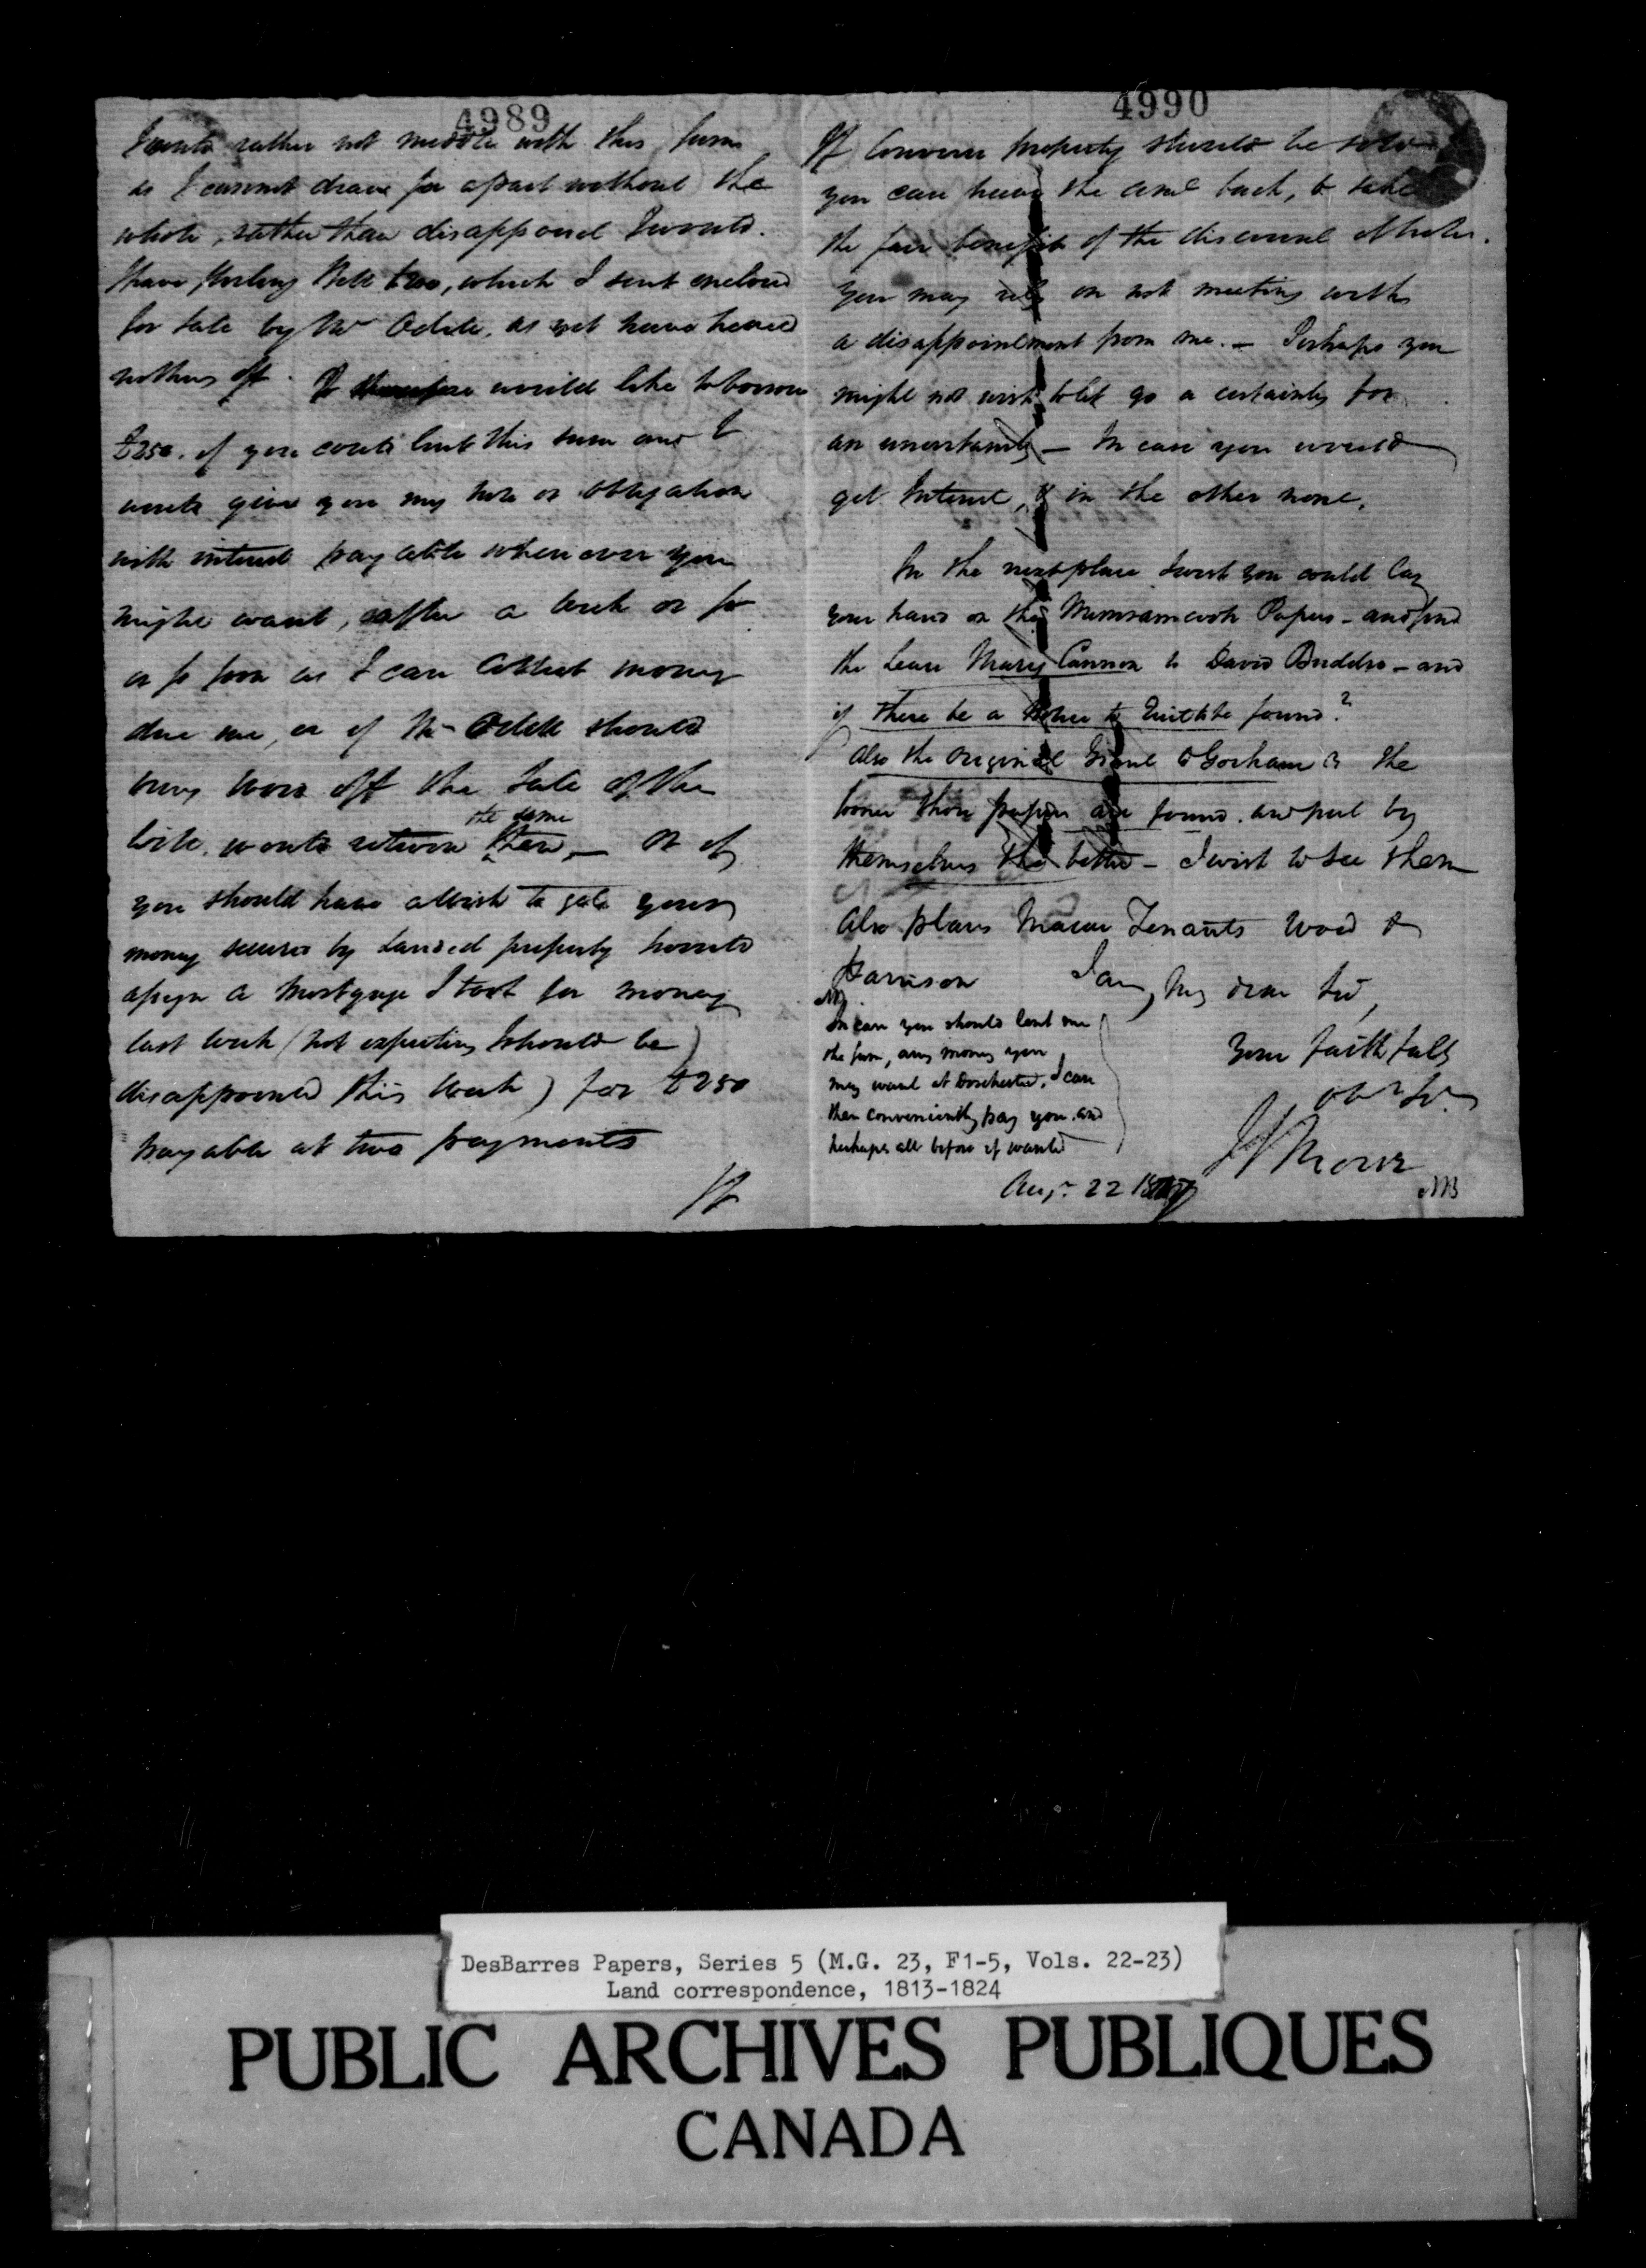 4989
I would rather not meddle with this sum
as I cannot draw for a part without the
whole, rather than disappoint I would.
I have Sterling Bill £200, which I sent enclosed
for sale by Mr Odell, as yet have heard
nothing off. I would like to borrow
£250. if you could lend this sum and I
would give you my note or obligation
with interest payable whenever you
might want, after a week or so
or so soon as I can Collect money
due me, or if Mr Odell should
bring word off the sale of the
bill, would return the same — Or if
you should have a wish to your
money secured by Landed property I would
assign a Mortgage I took for money
last week (not expecting I should be
disappointed this week) for £250
payable at two payments
If
4990
If property should be sold
you can have the back, & take
the fair benefit of the discount
You may rely on not meeting with
a disappointment from me. — Perhaps you
might not wish to let go a certainty for
an uncertainty — In case you would
get Interest, & in the other none.
In the next place I wish you could lay
your hand on the Memramcook Papers — and find
the Lease Mary Cannon to David — and
if there be a to found?
Also the original Grant Gorham the
sooner those papers are found and put by
themselves the better — I wish to see them
Also plans Tenants Wood &
Harrison I am, My dear Sir,
Your faithfull
In case you should lend me
the sum, any money you
may want at Dorchester, I can
then conveniently pay you and
perhaps all before if wanted
Augt 22
DesBarres Papers, Series 5 (M.G. 23, F1-5, Vols. 22-23)
Land correspondence, 1813-1824
PUBLIC ARCHIVES PUBLIQUES
CANADA